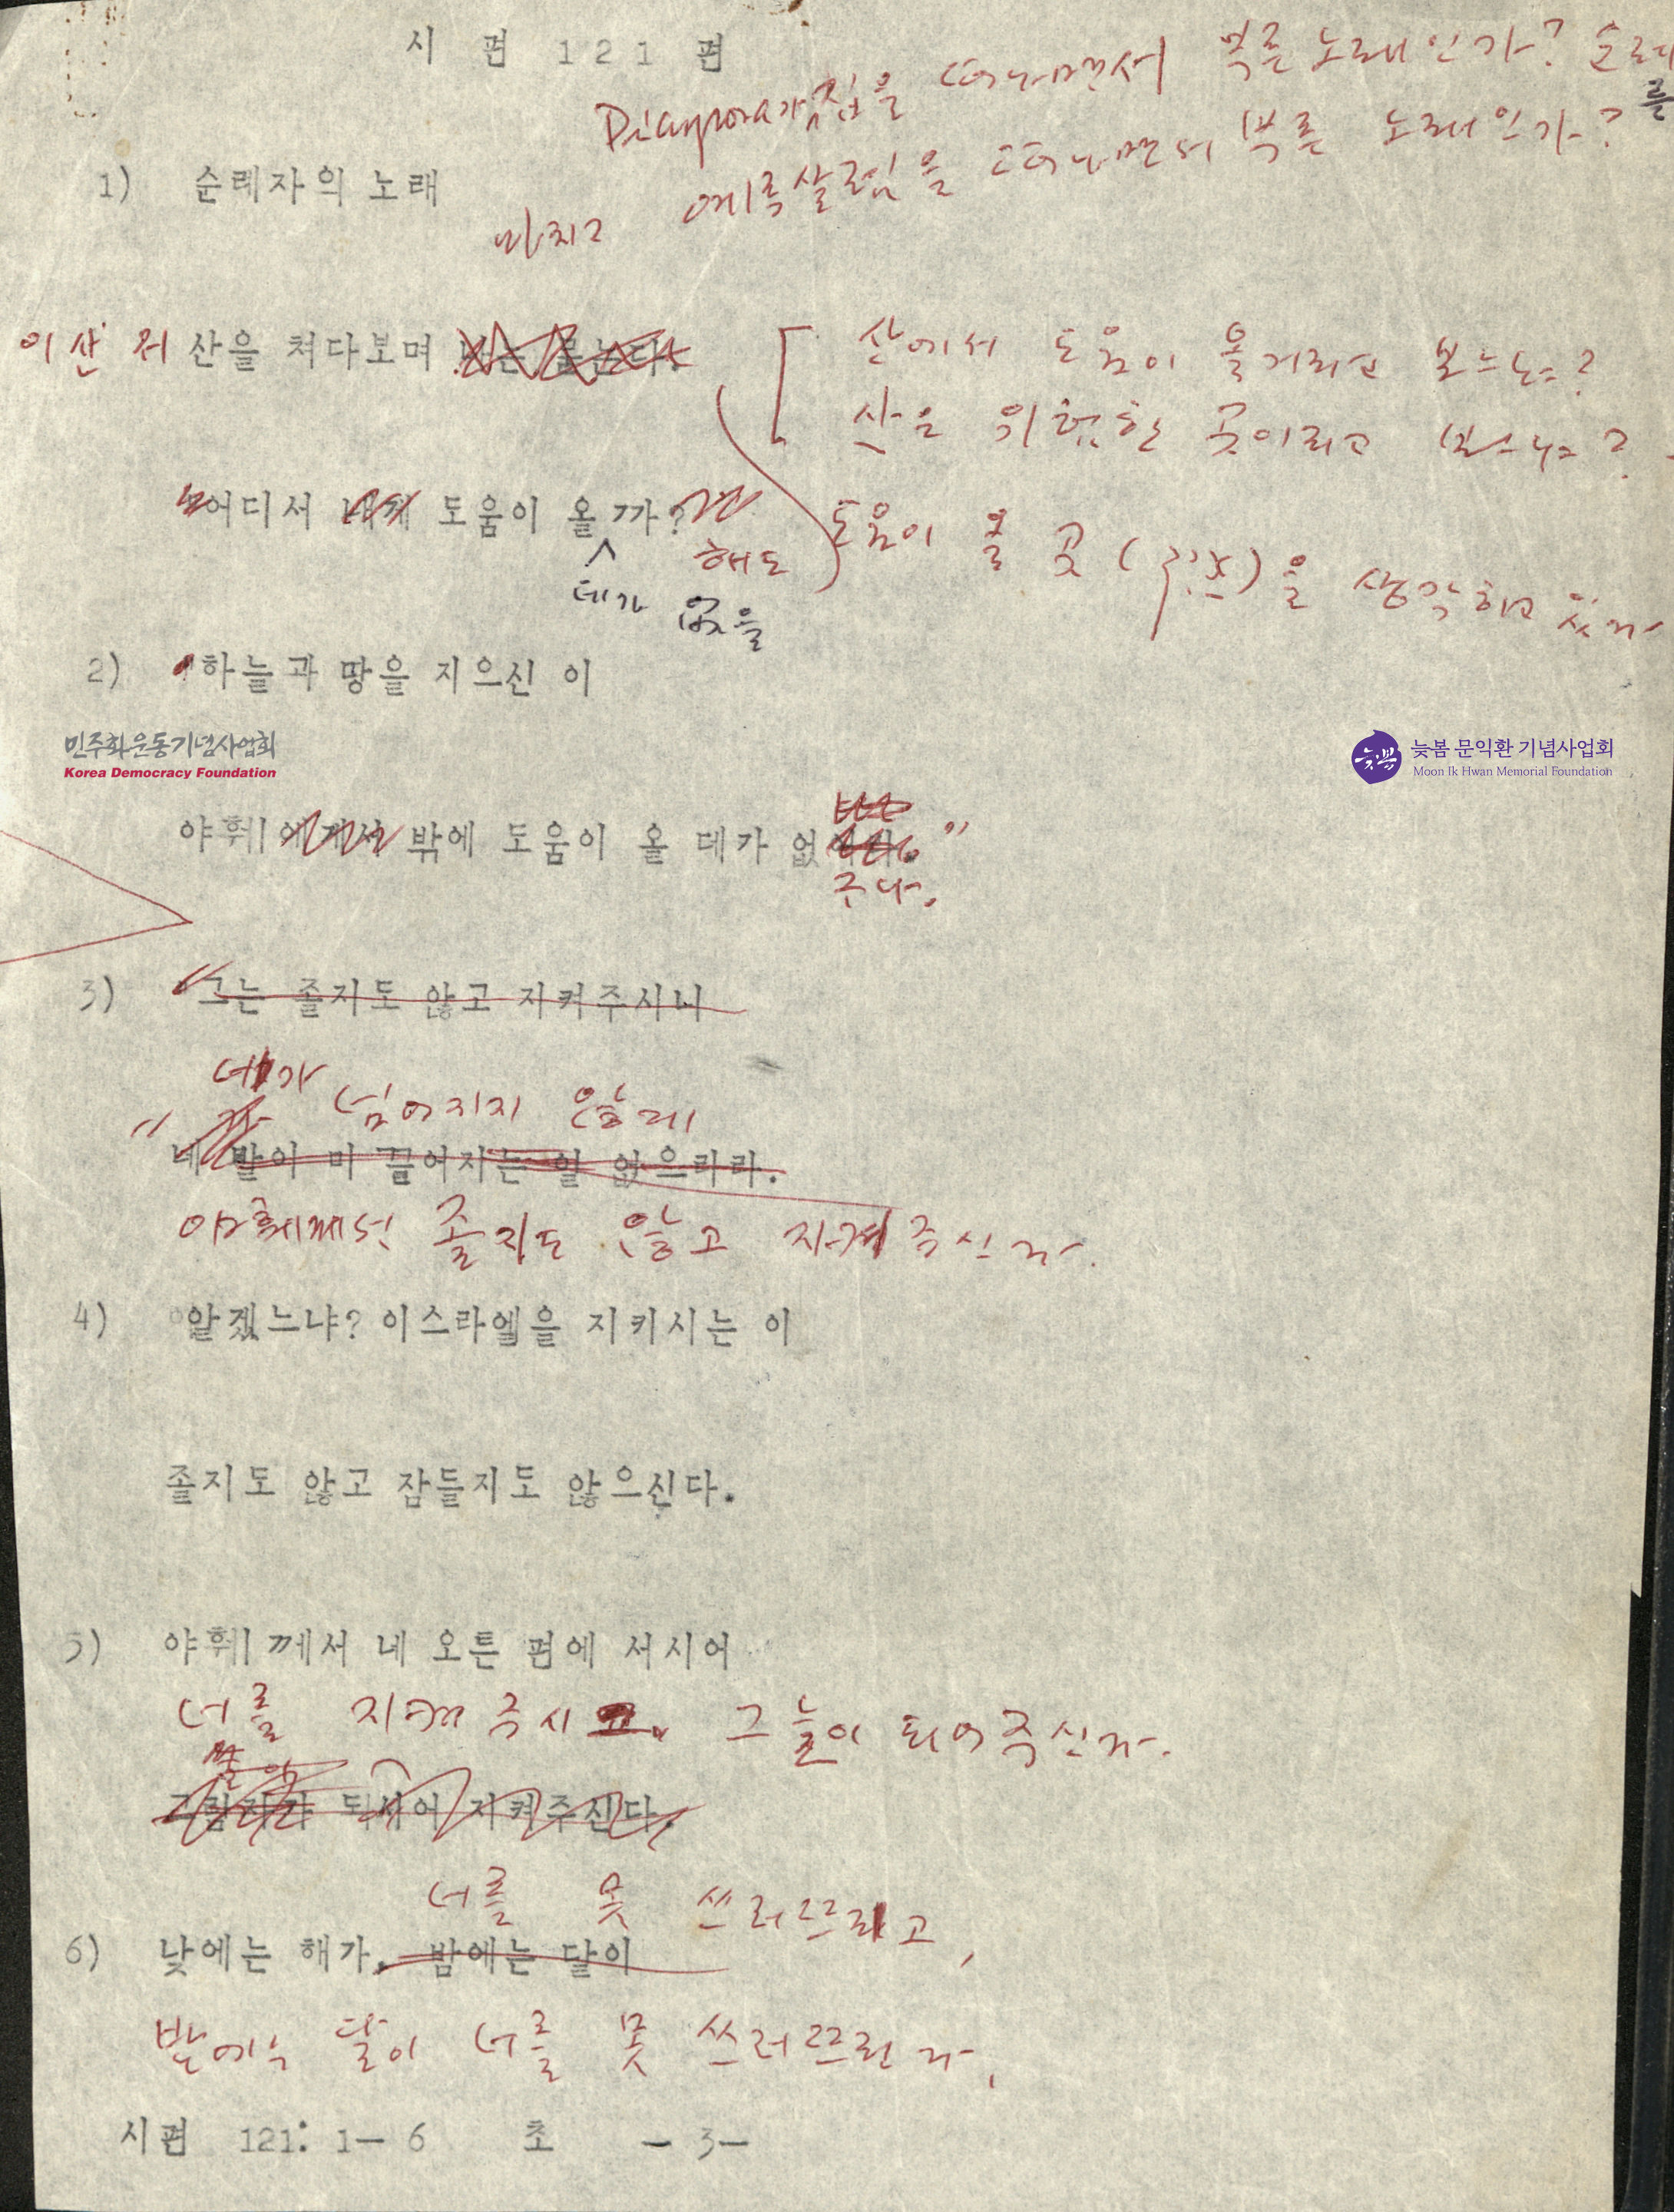 시 편 121 편
Diaspora가 집을 떠나면서 부른 노래인가? 순례를
1) 순례자의 노래
마치고 예루살렘을 떠나면서 부른 노래인가?
이 산 저 산을 쳐다보며
산에서 도움이 올거라고 보느냐?
산은 위험한 곳이라고 보느냐?
어디서 내게 도움이 올까?
해도
데가 없을
도움이 올 곳 을 생각하고 있다
2) 하늘과 땅을 지으신 이
민주화운동기념사업회
Korea Democracy Foundation
늦봄 문익환 기념사업회
Moon Ik Hwan Memorial Foundation
야훼 에게서 밖에 도움이 올 데가 없
구나.
3) 그는 졸지도 않고 지켜주시니
네가 넘어지지 않게
네 발이 미끌어지는 일 없으리라.
야훼께선 졸지도 않고 지켜 주신다.
4) 알겠느냐? 이스라엘을 지키시는 이
졸지도 않고 잠들지도 않으신다.
5) 야훼께서 네 오른 편에 서시어
너를 지켜 주시고. 그늘이 되어 주신다.
그림자가 되시어 지켜주신다.
너를 못 쓰러뜨리고,
6) 낮에는 해가, 밤에는 달이
밤에는 달이 너를 못 쓰러뜨린다.
시편 121: 1— 6 초 — 3—